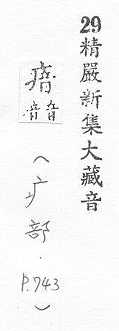 29精嚴新集大藏音
瘖音(疒部.P.743)